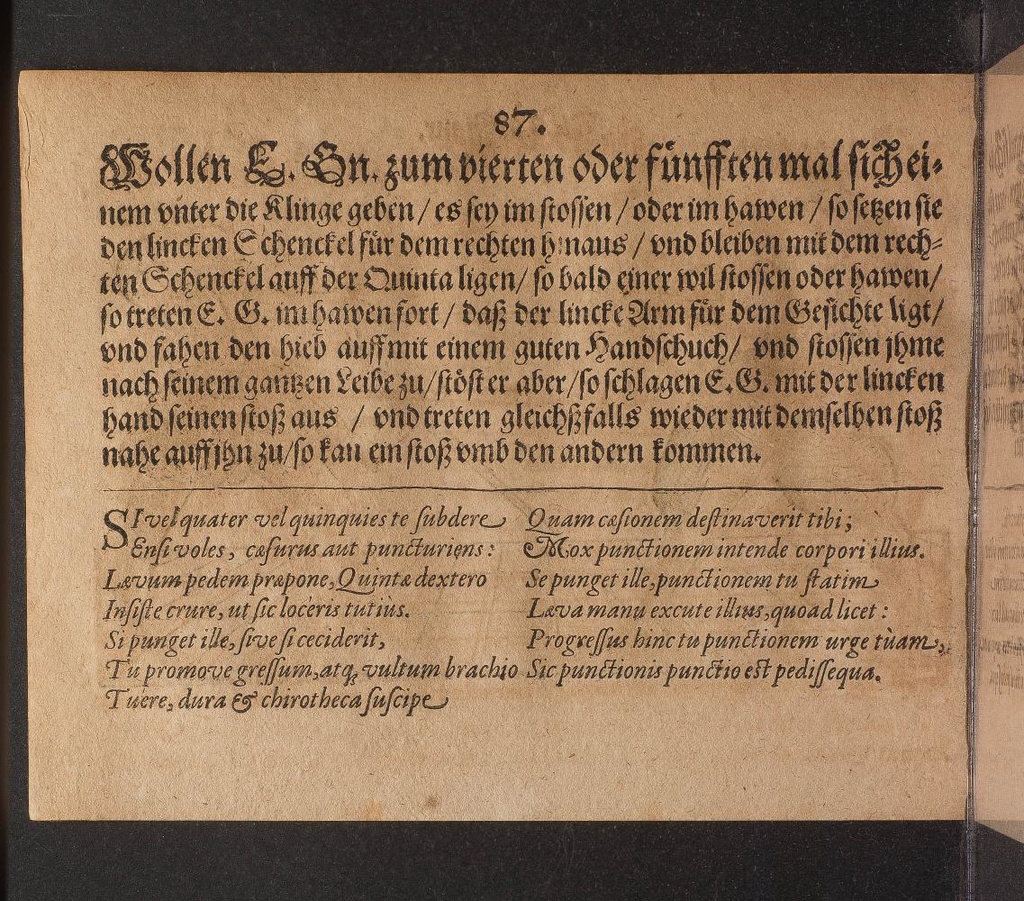 87.
Wollen E. Gn. zum vierten oder fünfften mal sich ei-
nem vnter die Klinge geben / es sey im stossen / oder im hawen / so setzen sie
den lincken Schenckel für dem rechten hinaus / vnd bleiben mit dem rech-
ten Schenckel auff der Quinta ligen / so bald einer wil stossen oder hawen /
so treten E. G. im hawen fort / daß der lincke Arm für dem Gesichte ligt /
vnd fahen den hieb auff mit einem guten Handschuch / vnd stossen jhme
nach seinem gantzen Leibe zu / stöst er aber / so schlagen E. G. mit der lincken
hand seinen stoß aus / vnd treten gleichßfalls wieder mit demselben stoß
nahe auff jhn zu / so kan ein stoß vmb den andern kommen.
SI vel quater vel quinquies te subdere
Ensi voles, cæsurus aut puncturiens:
Lævum pedem præpone, Quintæ dextero
Insiste crure, ut sic loceris tutius.
Si punget ille, sive si ceciderit,
Tu promove gressum, atq; vultum brachio
Tuere, dura & chirotheca suscipe
Quam cæsionem destinaverit tibi;
Mox punctionem intende corpori illius.
Se punget ille, punctionem tu statim
Læva manu excute illius, quoad licet:
Progressus hinc tu punctionem urge tùam,
Sic punctionis punctio est pedissequa.